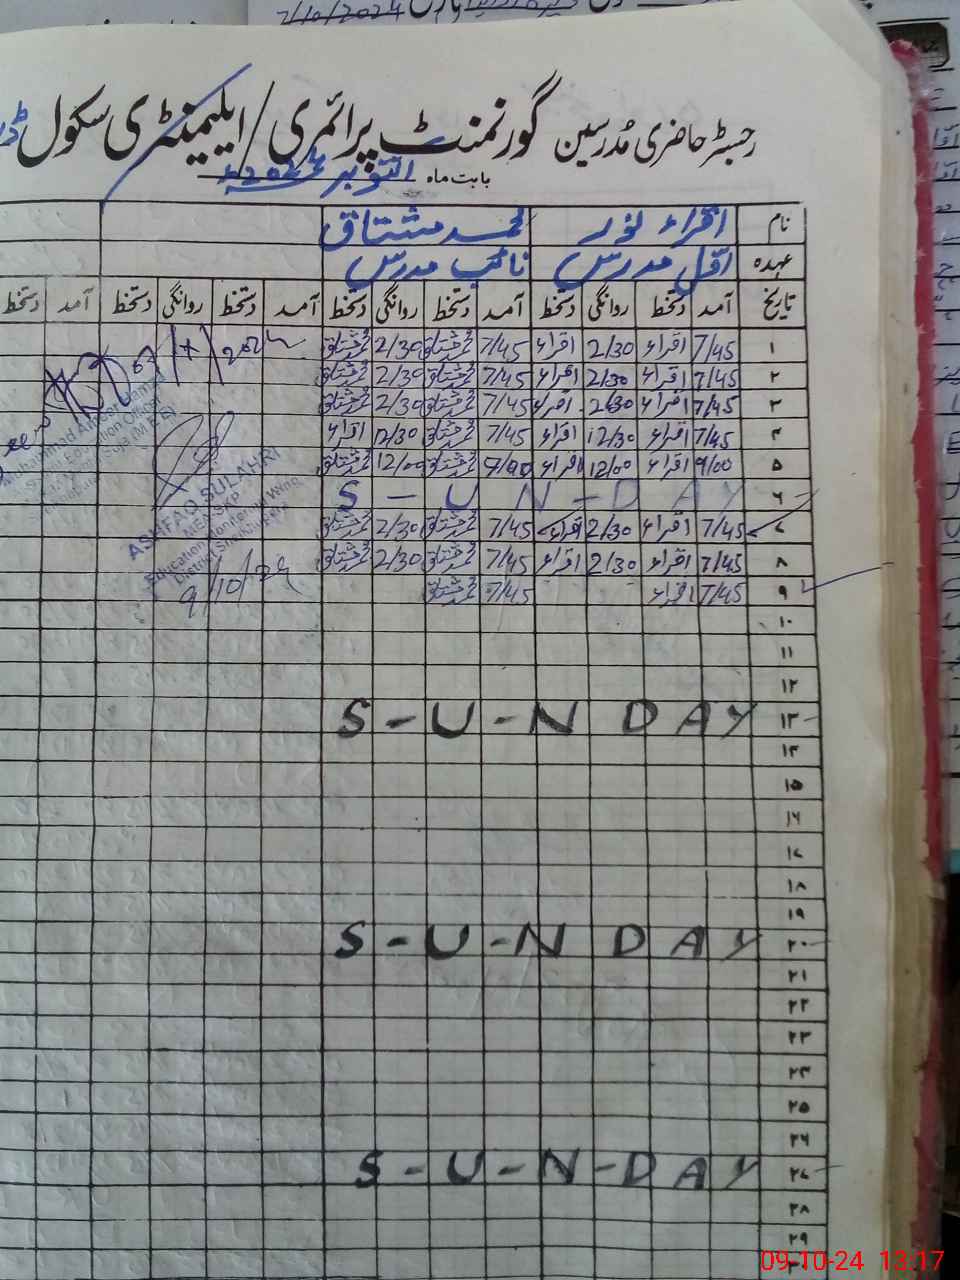 7/10/2024
رجسٹر حاضری مدرسین گورنمنٹ پرائمری / ایلیمنٹری سکول
بابت ماہ اکتوبر 2024ء
نام اقراء نور محمد مشتاق
عہدہ اول مدرس نائب مدرس
تاریخ آمد دستخط روانگی دستخط آمد دستخط روانگی دستخط آمد دستخط روانگی دستخط آمد دستخط
۱ 7/45 اقراء 2/30 اقراء 7/45 محمد مشتاق 2/30 محمد مشتاق
۲ 7/45 اقراء 2/30 اقراء 7/45 محمد مشتاق 2/30 محمد مشتاق
۳ 7/45 اقراء 2/30 اقراء 7/45 محمد مشتاق 2/30 محمد مشتاق
۴ 7/45 اقراء 12/30 اقراء 7/45 محمد مشتاق 12/30 اقراء
۵ 9/00 اقراء 12/00 اقراء 9/00 محمد مشتاق 12/00 محمد مشتاق
۶ S - U N - D A Y
۷ 7/45 اقراء 2/30 اقراء 7/45 محمد مشتاق 2/30 محمد مشتاق
۸ 7/45 اقراء 2/30 اقراء 7/45 محمد مشتاق 2/30 محمد مشتاق
۹ 7/45 اقراء 7/45 محمد مشتاق
Education Officer
ASHFAQ SULAHRI
MEA-SKP
Education Monitoring Wing
District Sheikhupura
9/10/24
۱۰
۱۱
۱۲
۱۳ S - U - N D A Y
۱۴
۱۵
۱۶
۱۷
۱۸
۱۹
۲۰ S - U - N D A Y
۲۱
۲۲
۲۳
۲۴
۲۵
۲۶
۲۷ S - U - N - D A Y
۲۸
۲۹
09-10-24 13:17